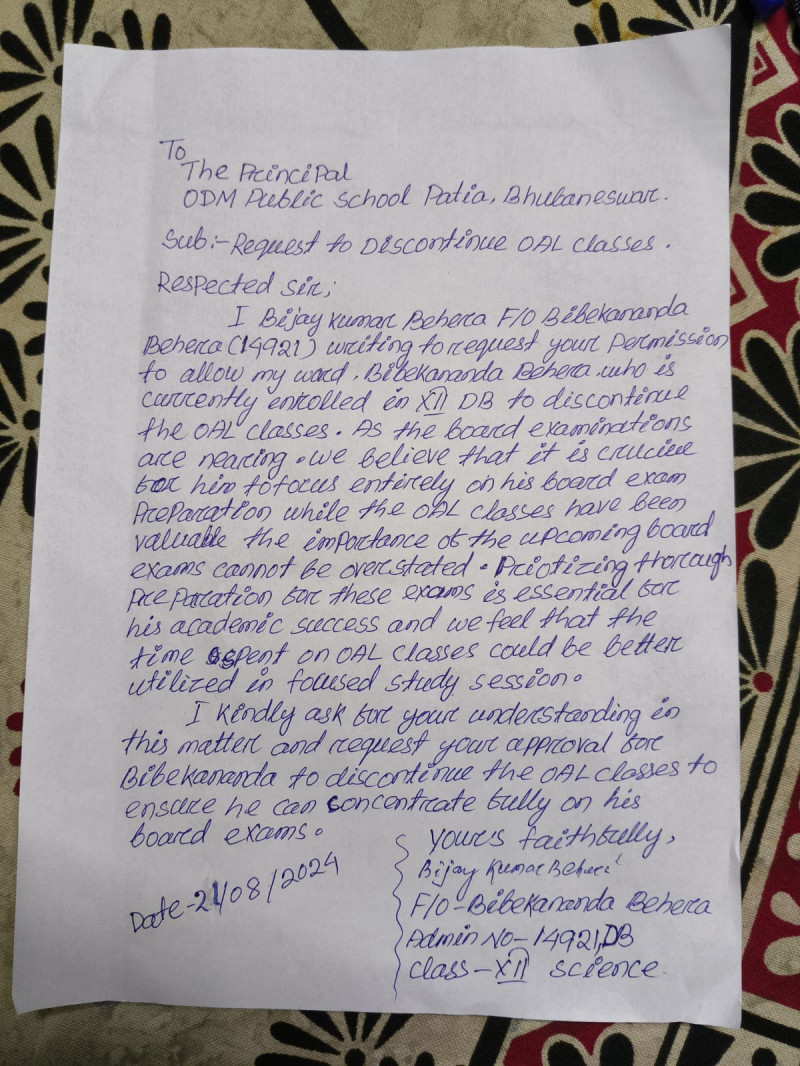 To
The Principal
ODM Public School Patia, Bhubaneswar.
Sub:- Request to Discontinue OAL classes.
Respected Sir;
I Bijay Kumar Behera F/O Bibekananda
Behera (14921) writing to request your permission
to allow my ward, Bibekananda Behera who is
currently enrolled in XII DB to discontinue
the OAL classes. As the board examinations
are nearing. we believe that it is crucial
for him to focus entirely on his board exam
Preparation while the OAL classes have been
valuable the importance of the upcoming board
exams cannot be overstated. Priotizing thorough
preparation for these exams is essential for
his academic success and we feel that the
time spent on OAL classes could be better
utilized in focused study session.
I kindly ask for your understanding in
this matter and request your approval for
Bibekananda to discontinue the OAL classes to
ensure he can concentrate fully on his
board exams.
Yours faithfully,
Bijay Kumar Behera
F/O-Bibekananda Behera
Admin No-14921, DB
Class-XII Science
Date-21/08/2024